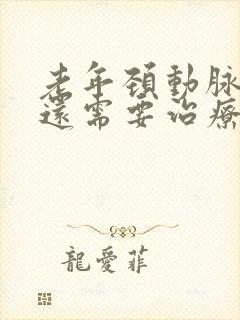 老年頚動脉
還需要治療
龍愛菲